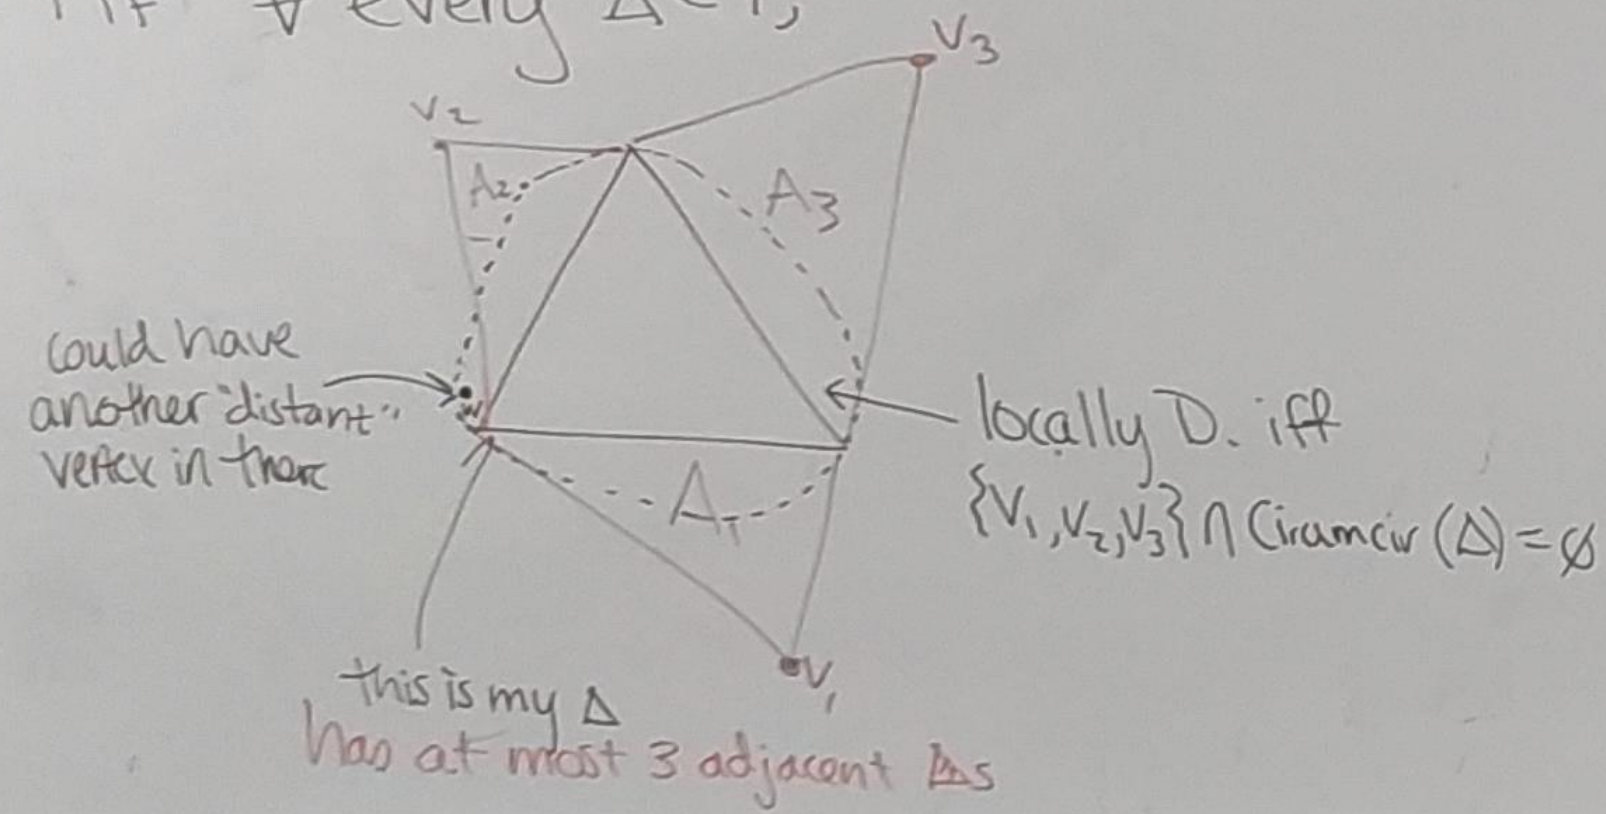 ∀ every Δ
V3
V2
A2
A3
could have
another "distant"
vertex in there
locally D. iff
{V1, V2, V3} ∩ Circumcir (Δ) = ∅
A1
V1
this is my Δ
has at most 3 adjacent Δs